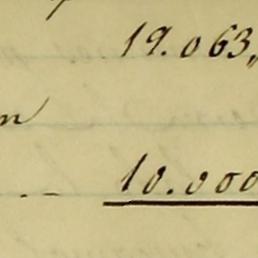 19.063,
n
10.000